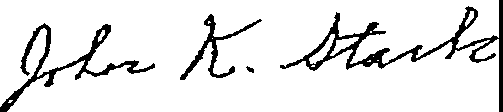 John K. Stark